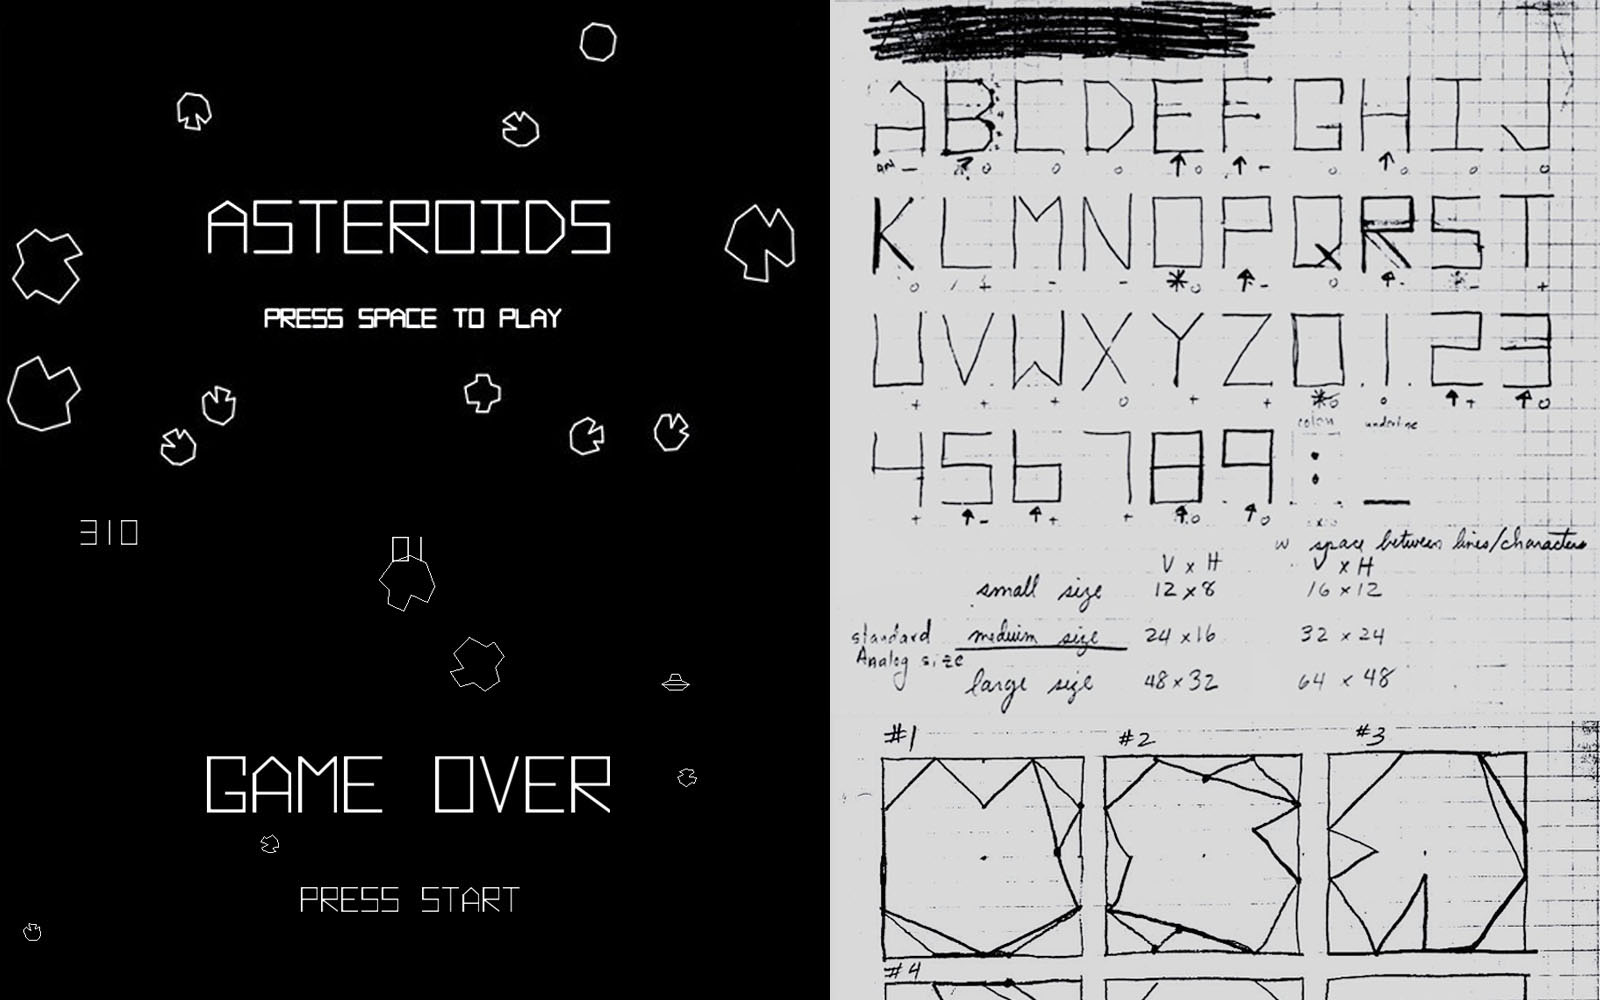 ASTEROIDS
PRESS SPACE TO PLAY
310
01
GAME OVER
PRESS START
ABCDEFGHIJ
KLMNOPQRST
UVWXYZ0123
colon underline
456789:_
w space between lines/characters
V x H V x H
small size 12 x 8 16 x 12
standard medium size 24 x 16 32 x 24
Analog size
large size 48 x 32 64 x 48
#1 #2 #3
#4